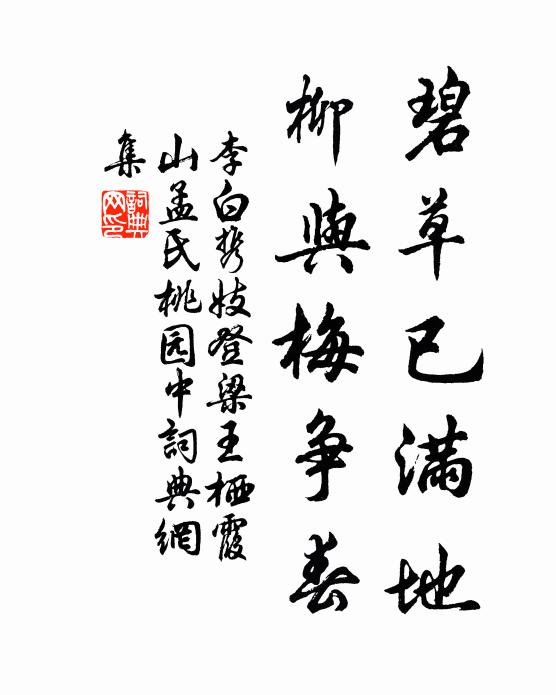 碧草已滿地
柳與梅争春
李白携妓登梁王栖霞
山孟氏桃园中詞典網
集
詞典
网印